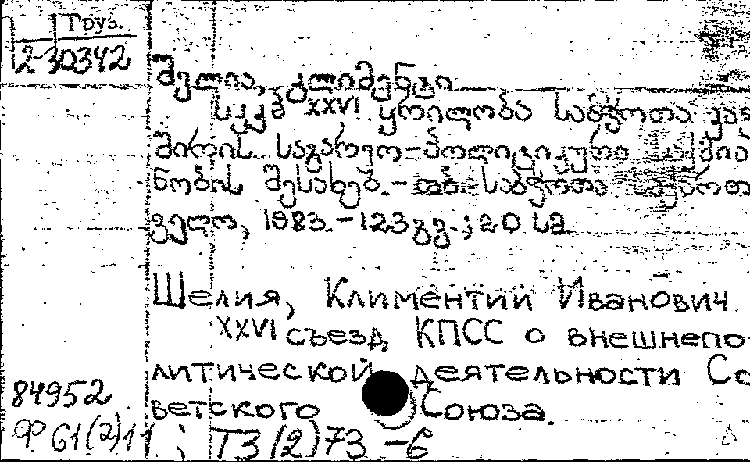 Груз.
2-30342
შელია, კლიმენტი
სკკპ XXVI ყრილობა საბჭოთა კავ
შირის საგარეო-პოლიტიკური საქმია
ნობის შესახებ. - თბ. საბჭოთა საქართ
ველო, 1983. - 123გვ.; 20 სმ
Шелия, Климентий Иванович
XXVI съезд КПСС о внешнепо-
литической деятельности Со
ветского Союза.
84952
Ф 61(2)11; Т3(2)73-6